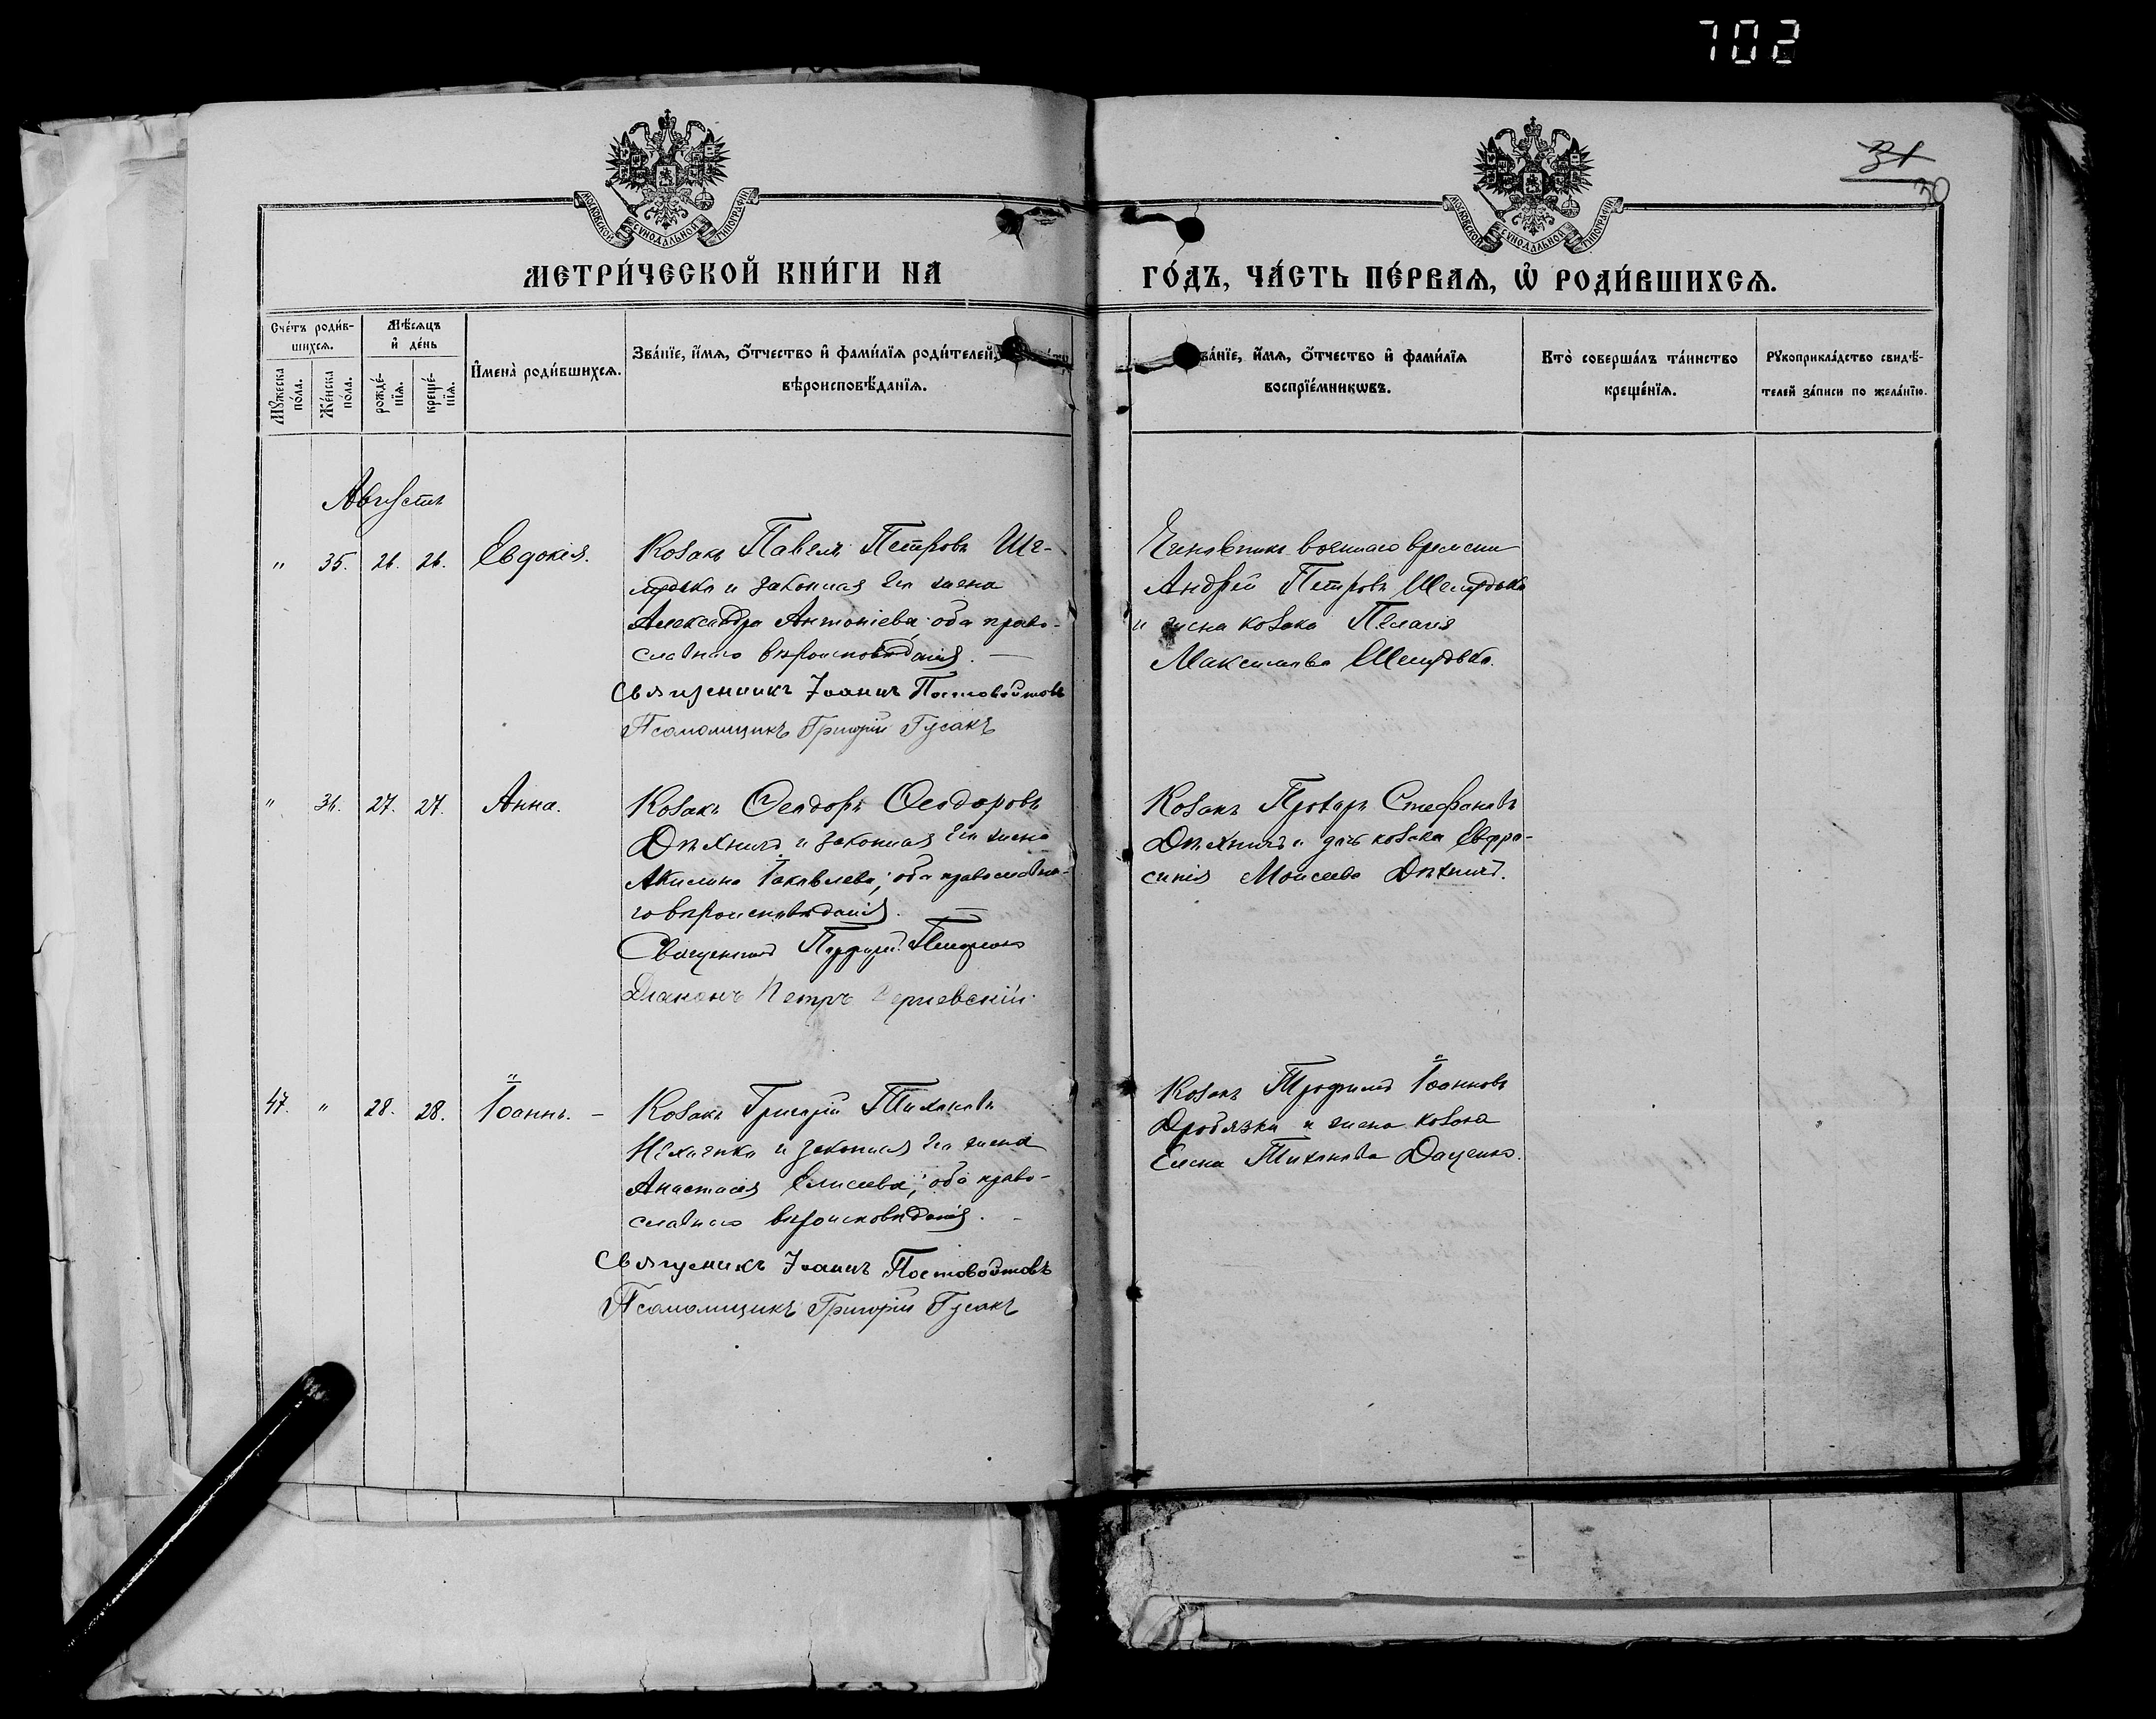 702
31
30
МОСКОВСКОЙ СѴНОДАЛЬНОЙ ТИПОГРАФІИ
МОСКОВСКОЙ СѴНОДАЛЬНОЙ ТИПОГРАФІИ
МЕТРИ́ЧЕСКОЙ КНИ́ГИ НА
ГО́ДЪ, ЧА́СТЬ ПЕ́РВАЯ, Ѡ҆ РОДИ́ВШИХСЯ.
Сче́тъ роди́в-
шихся.
Мѣ́сяцъ
и҆ де́нь
Мꙋ́жеска
по́ла.
Же́нска
по́ла.
рожде́-
нїя.
креще́-
нїя.
И҆мена̀ роди́вшихся.
Зва́нїе, и҆́мя, ѻ҆́тчество и҆ фами́лїя роди́телей,
вѣроисповѣ́данїя.
ва́нїе, и҆́мя, ѻ҆́тчество и҆ фами́лїя
воспрїе́мникѡвъ.
Кто̀ соверша́лъ та́инство
креще́нїя.
Рꙋкоприкла́дство свидѣ́-
телей за́писи по жела́нїю.
Августъ
" 35. 26. 26. Евдокія.
Козакъ Павелъ Петровъ Ше-
и законная его жена
Александра Антоніева оба право-
славнаго вѣроисповѣданія. —
Священникъ Іоаннъ Постовойтовъ
Псаломщикъ Григорій Гусакъ
Чиновникъ военнаго времени
Андрей Петровъ
и жена козака Пелагія
Максимова
" 36. 27. 27. Анна.
Козакъ Ѳеодоръ Ѳеодоровъ
Дѣхничъ и законная его жена
Акилина Іаковлева; оба православна-
го вѣроисповѣданія. —
Священникъ
Діаконъ Петръ
Козакъ Стефановъ
Дѣхничъ и дочь козака Евфро-
синія Моисеева Дѣхничъ.
47. " 28. 28. Іоаннъ. —
Козакъ Григорій Тихоновъ
и законная его жена
Анастасія Елисеева; оба право-
славнаго вѣроисповѣданія. —
Священникъ Іоаннъ Постовойтовъ
Псаломщикъ Григорій Гусакъ
Козакъ Трофимъ Іоанновъ
Дробязка и жена козака
Елена Тихонова Даценко.